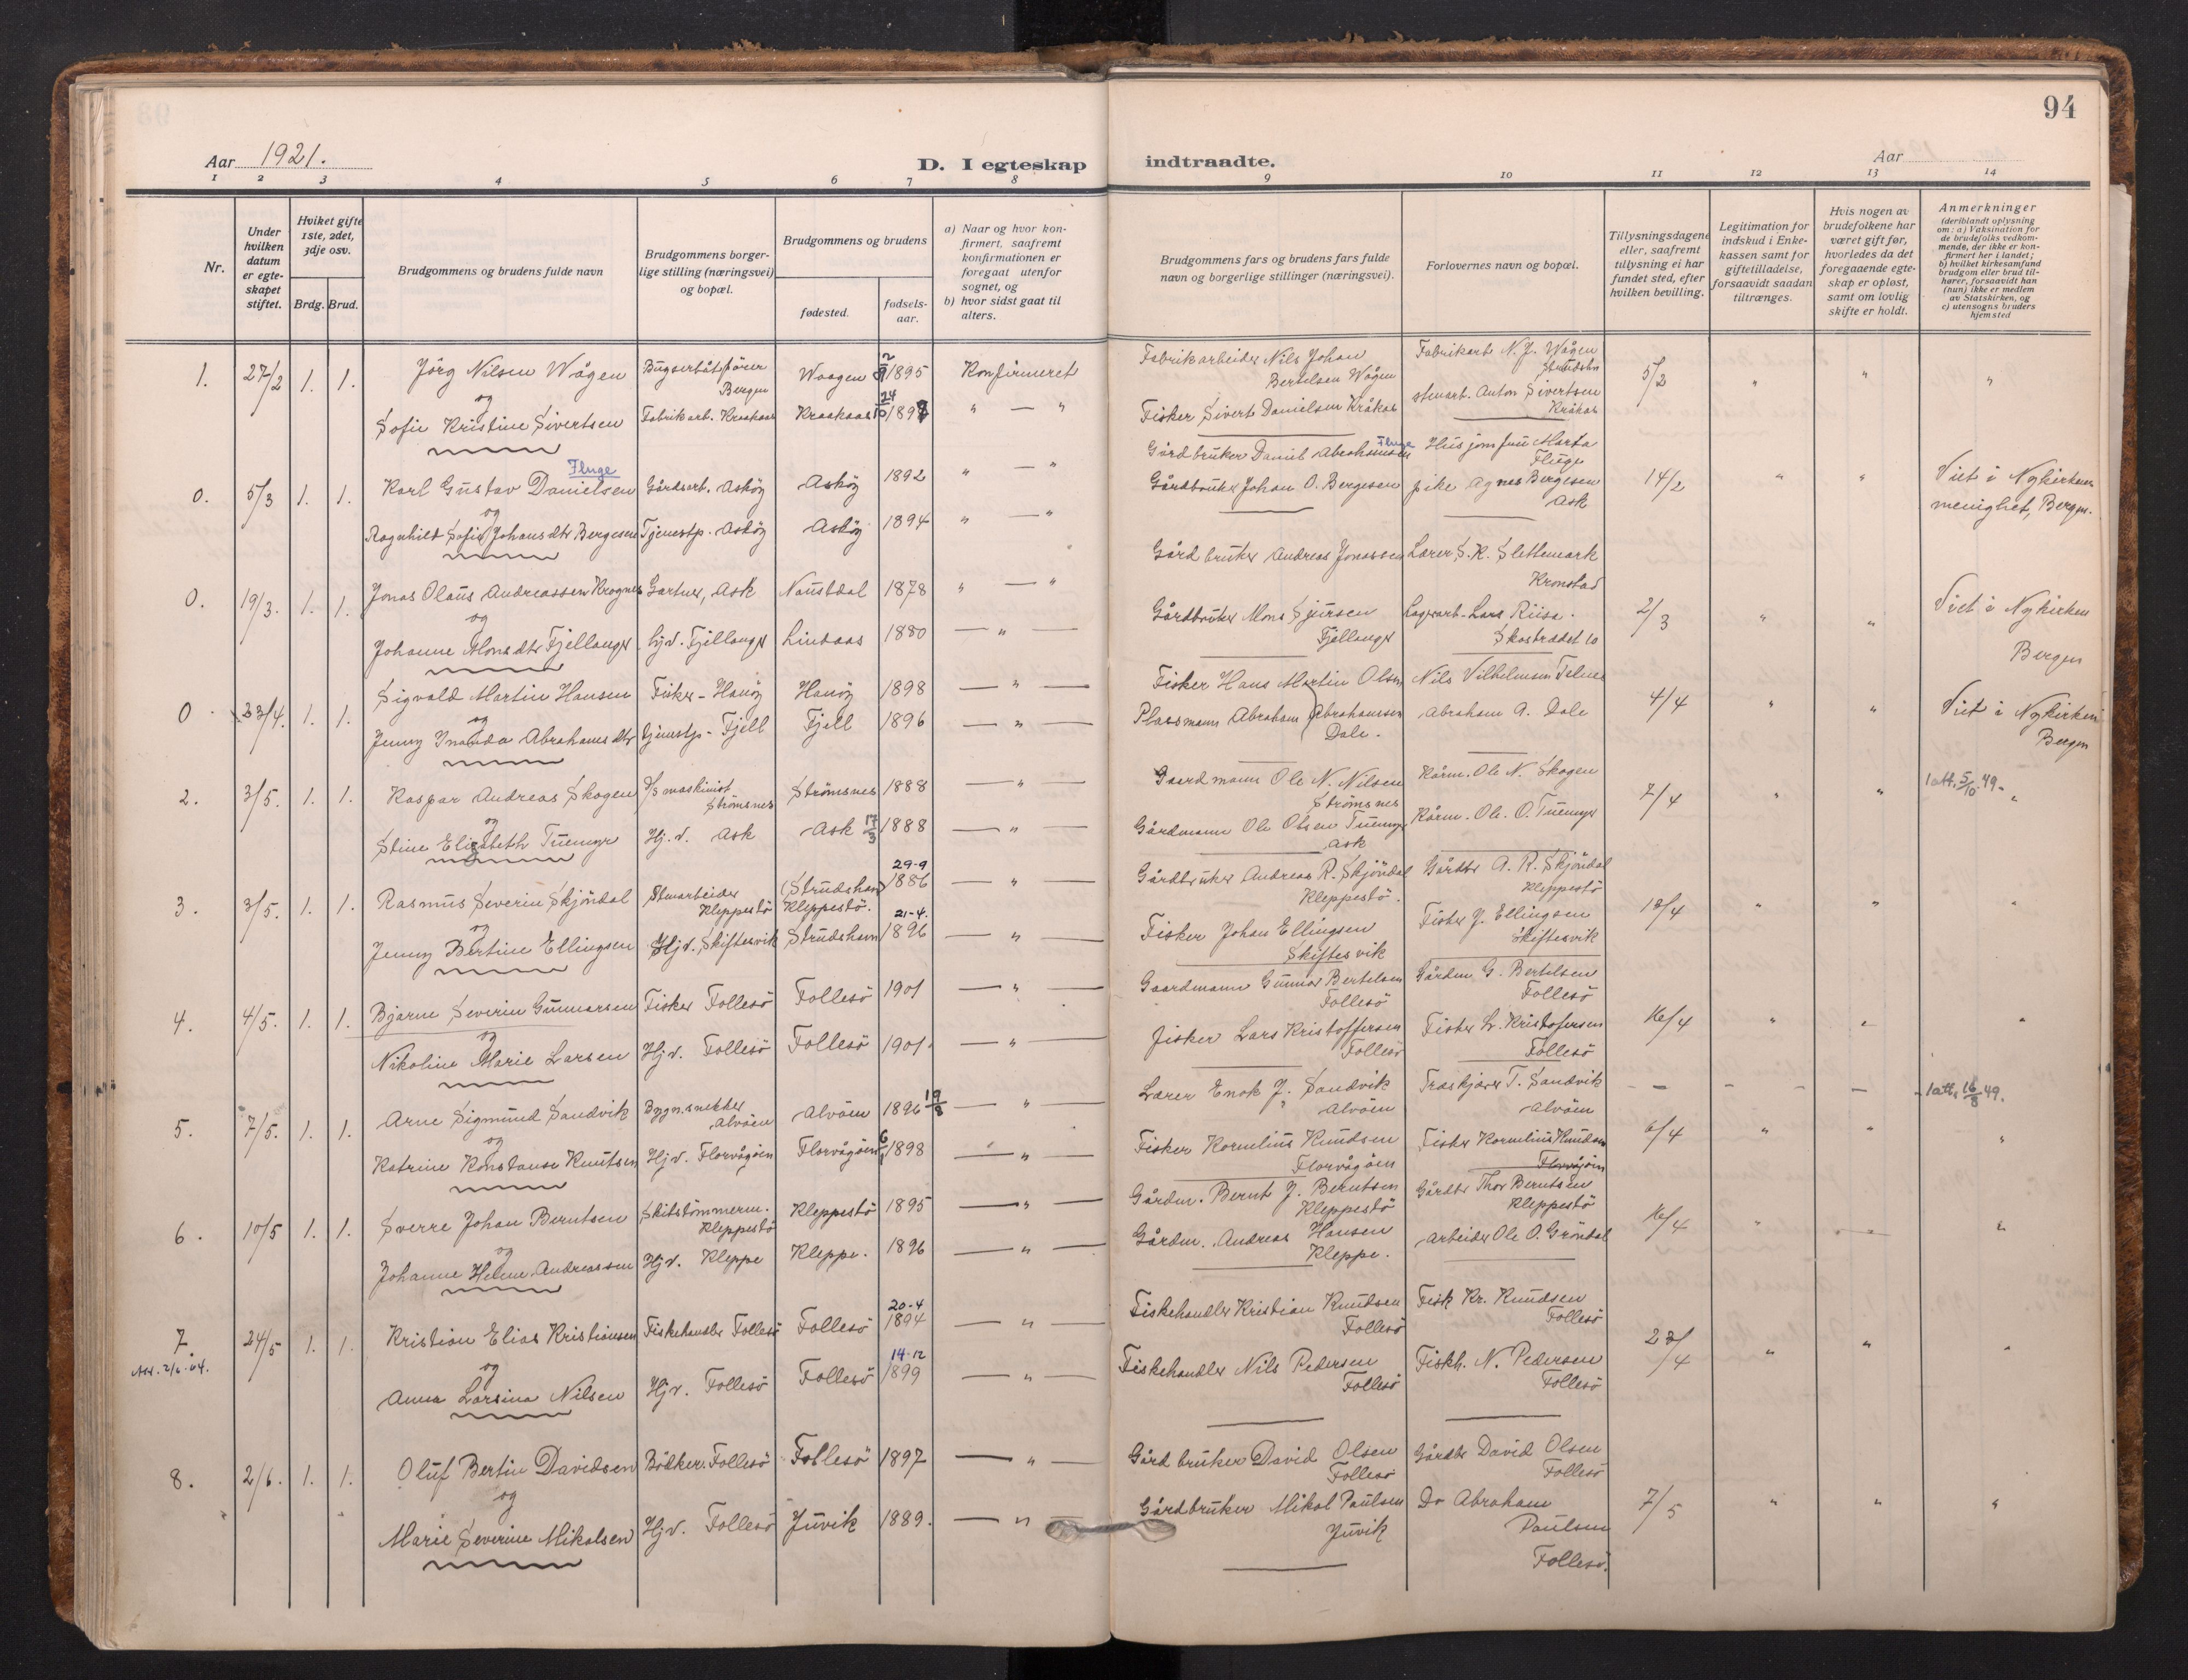 94
Aar 1921.
D. I egteskap indtraadte.
Aar
1 2 3 4 5 6 7 8 9 10 11 12 13 14
Nr.
Under hvilken datum er egteskapet stiftet.
Hviket gifte 1ste, 2det, 3dje osv.
Brdg. Brud.
Brudgommens og brudens fulde navn
Brudgommens borgerlige stilling (næringsvei) og bopæl.
Brudgommens og brudens
fødested.
fødselsaar.
a) Naar og hvor konfirmert, saafremt konfirmationen er foregaat utenfor sognet, og
b) hvor sidst gaat til alters.
Brudgommens fars og brudens fars fulde navn og borgerlige stillinger (næringsvei).
Forlovernes navn og bopæl.
Tillysningsdagene eller, saafremt tillysning ei har fundet sted, efter hvilken bevilling.
Legitimation for indskud i Enkekassen samt for giftetilladelse, forsaavidt saadan tiltrænges.
Hvis nogen av brudefolkene har været gift før, hvorledes da det foregaaende egteskap er opløst, samt om lovlig skifte er holdt.
Anmerkninger
(deriblandt oplysning om: a) Vaksination for de brudefolks vedkommende, der ikke er konfirmert her i landet; b) hvilket kirkesamfund brudgom eller brud tilhører, forsaavidt han (hun) ikke er medlem av Statskirken, og c) utensogns bruders hjemsted
1. 27/2 1. 1. Jörg Nilsen Wågen Bugserbåtförer Bergen Waagen 1895 Konfirmeret Fabrikarbeider Nils Johan Bertelsen Wågen Fabrikarb N. J. Wågen 5/2 " " "
og
Sofie Kristine Sivertsen Fabrikarb. Kraakaas Kraakaas 24/10 1897 " — " Fisker Sivert Danielsen Kråkås Stenarb. Anton Sivertsen Kråkås
0. 5/3 1. 1. Karl Gustav Danielsen Fluge Gårdsarb. Asköy Asköy 1892 " — " Gårdbruker Daniel Abrahamsen Fluge Husjomfru Marta Fluge 14/2 " " Viet i Nykirken menighet, Bergen.
og
Ragnhild Sofie Johansdtr Bergesen Tjenestp. Asköy Asköy 1894 " — " Gårdbruker Johan O. Bergesen pike Agnes Bergesen Ask
0. 19/3. 1. 1. Jonas Olaus Andreassen Krognes Gartner, Ask Naustdal 1878 " — " Gårdbruker Andreas Jonassen Lærer S. K. Slettemark Kronstad 2/3 " " Viet i Nykirken Bergen
og
Johanne Monsdtr Fjellanger hjv. Fjellanger Lindaas 1880 — " — Gårdbruker Mons Sjursen Fjellanger Lagerarb. Lars Riisa. Skostrædet 10
0. 23/4. 1. 1. Sigvald Martin Hansen Fisker - Hanöy Hanöy 1898 — " — Fisker Hans Martin Olsen Nils Vilhelmsen Telnes 4/4 " " Viet i Nykirken Bergen
og
Jenny Abrahamsdtr tjenestp - Fjell Fjell 1896 — " — Plassmann Abraham Abrahamsen Dale. Abraham A. Dale
2. 3/5. 1. 1. Kaspar Andreas Skogen D/S maskinist Strömsnes Strömsnes 1888 — " — Gaardmann Ole N. Nilsen Strömsnes Kårm. Ole N. Skogen 7/4 " " 1 att. 5/10.49.
og
Stine Elisabeth Tuenger Hj.v. Ask Ask 17/3 1888 — " — Gårdmann Ole Olsen Tuenger Ask Kårm. Ole. O. Tuenger
3. 3/5. 1. 1. Rasmus Severin Skjöndal Stenarbeider Kleppestö (Strudshavn) Kleppestö. 29-9 1886 — " — Gårdbruker Andreas R. Skjöndal Kleppestö. Gårdbr A. R. Skjöndal Kleppestö 18/4 " " "
og
Jenny Bertine Ellingsen Hjv. Skiftesvik Strudshavn 21-4. 1896 — " — Fisker Johan Ellingsen Skiftesvik Fisker J. Ellingsen Skiftesvik
4. 4/5. 1. 1. Bjarne Severin Gunnarsen Fisker Follesö Follesö 1901 — " — Gaardmann Gunnar Bertelsen Follesö Gårdm G. Bertelsen Follesö 16/4 " " "
og
Nikoline Marie Larsen Hjv. Follesö Follesö 1901. — " — Fisker Lars Kristoffersen Follesö Fisker L. Kristofersen Follesö
5. 7/5. 1. 1. Arne Sigmund Sandvik Bygn.snekker Alvöen Alvöen 1896 19/8 — " — Lærer Enok J. Sandvik Alvöen Træskjærer T. Sandvik Alvöen — — — 1 att. 16/8 49.
og
Katrine Konstanse Knutsen Hjv. Florvågöen Florvågöen 1898 — " — Fisker Kornelius Knudsen Florvågöen Fisker Kornelius Knudsen Florvågöen 6/4 " " "
6. 10/5 1. 1. Sverre Johan Berntsen Skibstömmerm. Kleppestö Kleppestö 1895 — " — Gårdm. Bernt J. Berntsen Kleppestö Gårdbr Thor Berntsen Kleppestö 16/4 " — "
og
Johanne Helene Andreassen Hjv. Kleppe Kleppe. 1896 — " — Gårdm. Andreas Hansen Kleppe. Arbeider Ole O. Gröndal
7. 24/5 1. 1. Kristian Elias Kristiansen Fiskehandler Follesö Follesö 20-4 1894 — " — Fiskehandler Kristian Knudsen Follesö Fisk Kr. Knudsen Follesö 23/4 " " "
Att. 2/6-64. og
Anna Larsina Nilsen Hjv. Follesö Follesö 14-12 1899 — " — Fiskehandler Nils Pedersen Follesö Fiskh. N. Pedersen Follesö
8. 2/6. 1. 1. Oluf Bertin Davidsen Bödker. Follesö Follesö 1897 — " — Gårdbruker David Olsen Follesö Gårdbr David Olsen Follesö 7/5 " " "
og
Marie Severine Mikalsen Hjv. Follesö Juvik 1889. — " — Gårdbruker Mikal Paulsen Juvik Do Abraham Paulsen Follesö.